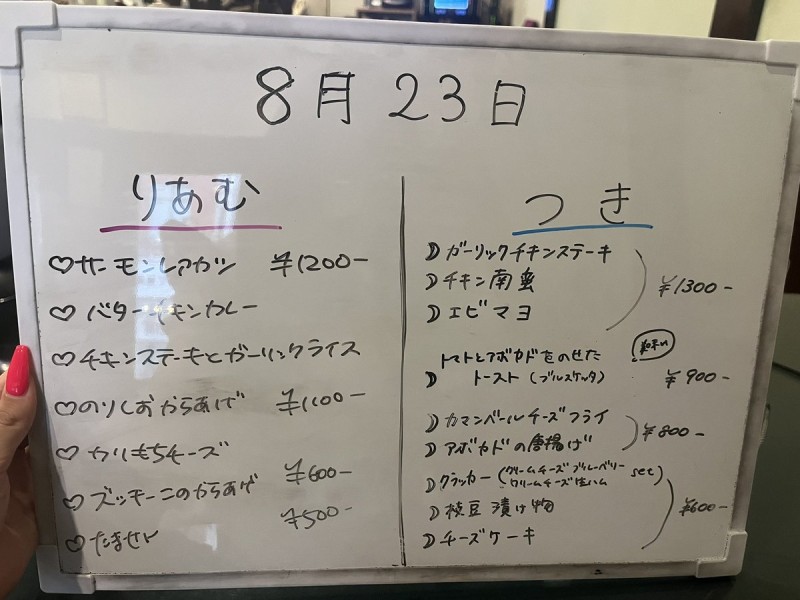 8月23日
りあむ
♡サーモンレアカツ ¥1200-
♡バターチキンカレー
♡チキンステーキとガーリックライス
♡のりしおからあげ ¥1100-
♡カリもちチーズ
♡ズッキーニのからあげ ¥600-
♡たません ¥500-
つき
☽ガーリックチキンステーキ
☽チキン南蛮 ¥1300-
☽エビマヨ
トマトとアボカドをのせた
☽トースト(ブルスケッタ) ¥900-
☽カマンベールチーズフライ
☽アボカドの唐揚げ ¥800-
☽クラッカー(クリームチーズブルーベリー set)
クリームチーズ生ハム
☽枝豆漬け物 ¥600-
☽チーズケーキ